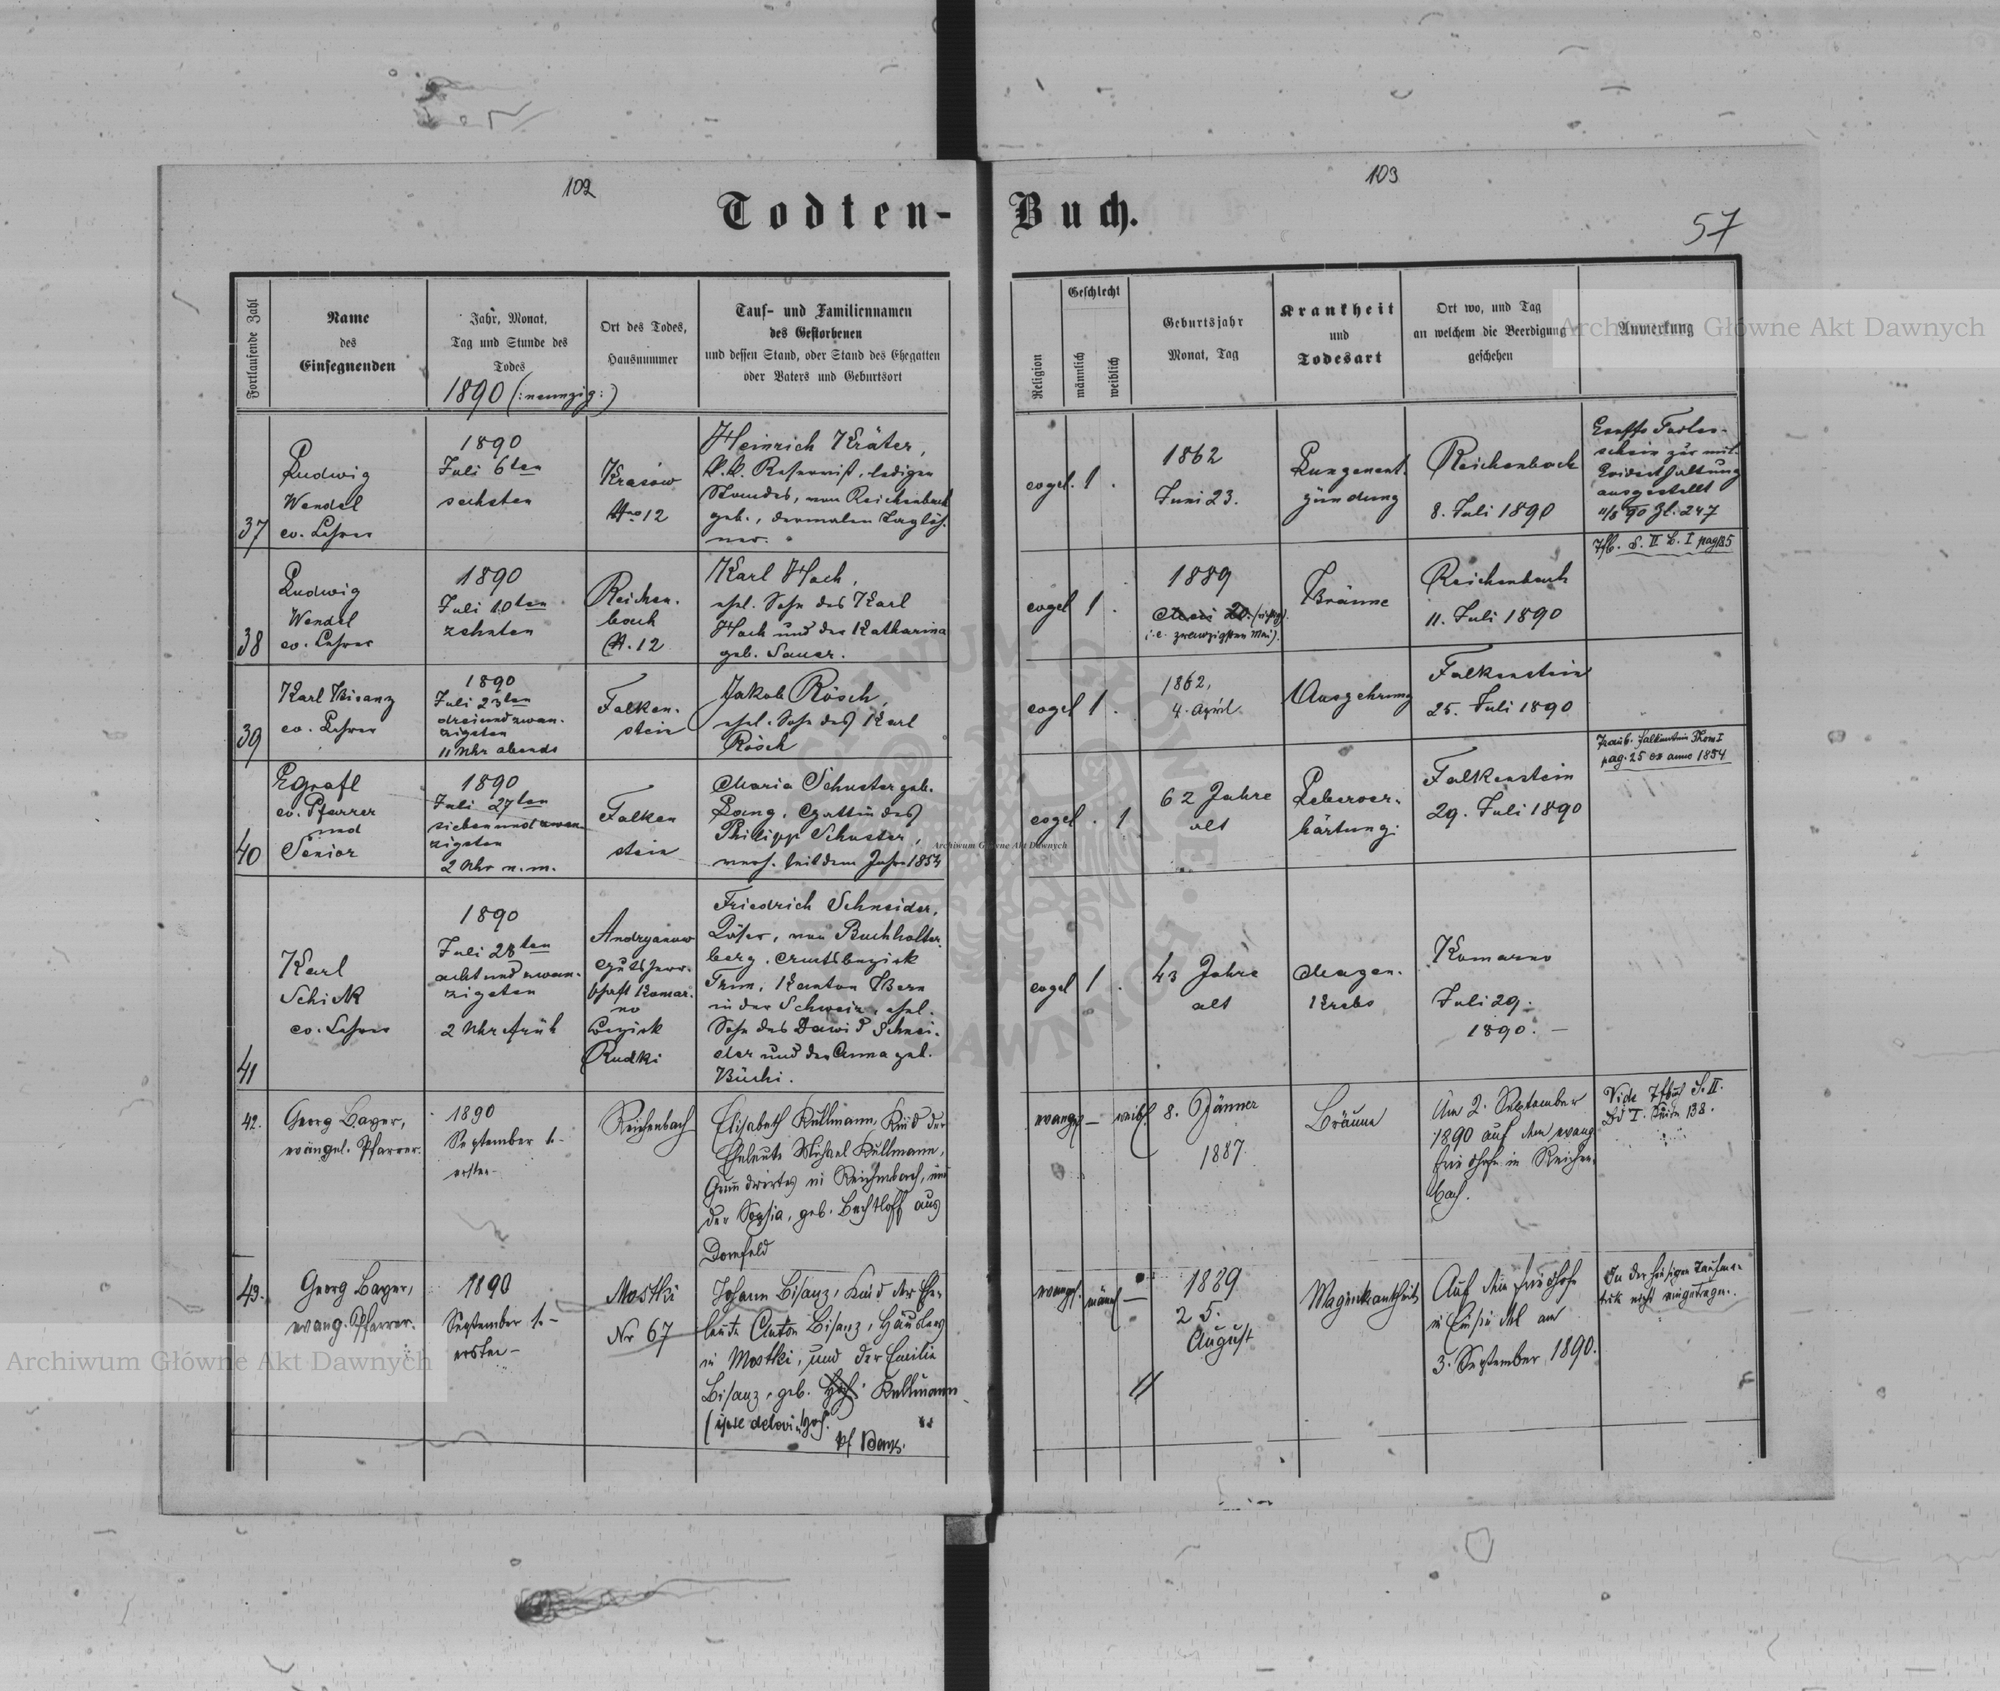 102
103
Todten-Buch.
57
Fortlaufende Zahl
Name
des
Einsegnenden
Jahr, Monat,
Tag und Stunde des
Todes
1890 (:neunzig:)
Ort des Todes,
Hausnummer
Tauf- und Familiennamen
des Gestorbenen
und dessen Stand, oder Stand des Ehegatten
oder Vaters und Geburtsort
Religion
Geschlecht
männlich
weiblich
Geburtsjahr
Monat, Tag
Krankheit
und
Todesart
Ort wo, und Tag
an welchem die Beerdigung
geschehen
Anmerkung
37
Ludwig
Wendel
ev. Lehrer
1890
Juli 6ten
sechsten
Krasów
Nro 12
Heinrich Kräter,
k.k. Reservist, ledigen
Standes, von Reichenbach
geb., dermalen Taglöh-
ner.
evgel. 1 .
1862
Juni 23.
Lungenent-
zündung
Reichenbach
8. Juli 1890
schein zur mil.
Evidenthaltung
ausgestellt
11/8 90 Zl. 247
38
Ludwig
Wendel
ev. Lehrer
1890
Juli 10ten
zehnten
Reichen-
bach
N. 12
Karl Hach,
ehel. Sohn des Karl
Hach und der Katharina
geb. Sauer.
evgel 1 .
1889
Mai 20. (richtig)
i.e. zwanzigsten Mai).
Bräune
Reichenbach
11. Juli 1890
Tfb. S. II B. I pag 135
39
Karl Bisanz
ev. Lehrer
1890
Juli 23ten
dreiundzwan-
zigsten
11 Uhr abends
Falken-
stein
Jakob Rösch,
ehel. Sohn des Karl
Rösch
evgel 1 .
1862,
4. April
Auszehrung
Falkenstein
25. Juli 1890
40
Egrafl
ev. Pfarrer
und
Senior
1890
Juli 27ten
siebenundzwan-
zigsten
2 Uhr n.m.
Falken
stein
Maria Schuster geb.
Lang, Gattin des
Philipp Schuster,
verh. seit dem Jahre 1854
evgel . 1
62 Jahre
alt
Leberver-
härtung.
Falkenstein
29. Juli 1890
Traub. Falkenstein Thom I
pag. 25 ex anno 1854
41
Karl
Schick
ev. Lehrer
1890
Juli 28ten
achtundzwan-
zigsten
2 Uhr früh
Andryanow
Gutsherr-
schaft Komar-
no
Bezirk
Rudki
Friedrich Schneider,
Käser, von Buchholter-
berg, Amtsbezirk
Trun, Kanton Bern
in der Schweiz, ehel.
Sohn des David Schnei-
der und der Anna geb.
Büchi.
evgel 1 .
43 Jahre
alt
Magen-
krebs
Komarno
Juli 29.
1890. —
42.
Georg Bayer,
evangel. Pfarrer.
1890
September 1.-
ersten-
Reichenbach
Elisabeth Kullmann, Kind der
Eheleute Michael Kullmann,
Grundwirtes in Reichenbach, und
der Sophia, geb. Bechtloff aus
Dornfeld
evangel — weibl.
8. Jänner
1887
Bräune
Am 2. September
1890 auf dem evang.
Friedhofe in Reichen-
bach.
Vide Tfbuch S. II.
Bd I. Seite 138.
43.
Georg Bayer,
evang. Pfarrer.
1890
September 1.-
ersten-
Mostki
Nr 67
Johann Bisanz, Kind der Ehe-
leute Anton Bisanz, Häuslers
in Mostki, und der Emilie
Bisanz, geb. Hoch. Kullmann
(ipse delevi „Hoch“.
Pf Bayer.
evangel. männl —
1889
25.
August
Magenkrankheit
Auf dem Friedhofe
in Einsiedel am
3. September 1890.
In der hiesigen Taufma-
trik nicht eingetragen.
Archiwum Główne Akt Dawnych
Archiwum Główne Akt Dawnych
Archiwum Główne Akt Dawnych